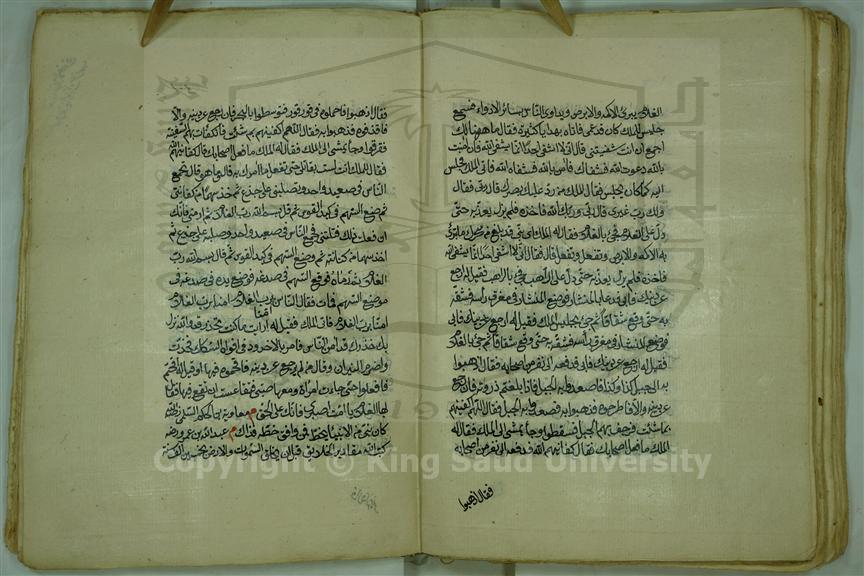 الغلام يبرئ الاكمه والابرص ويداوي الناس بسائر الادواء فسمع
جليس الملك كان قد عمي فاتاه بهدايا كثيرة فقال ما ههنا لك
اجمع ان انت شفيتني قال اني لا اشفي احدا انما يشفي الله فان امنت
بالله دعوت الله فشفاك فآمن بالله فشفاه الله فاتى الملك فجلس
اليه كما كان يجلس فقال له الملك من رد عليك بصرك قال ربي فقال
ولك رب غيري قال ربي وربك الله فاخذه فلم يزل يعذبه حتى
دل على الغلام فجئ بالغلام فقال له الملك اي بني قد بلغ من سحرك ما تبرئ
به الاكمه والابرص وتفعل وتفعل فقال اني لا اشفي احدا انما يشفي الله
فاخذه فلم يزل يعذبه حتى دل على الراهب فجئ بالراهب فقيل له ارجع
عن دينك فابى فدعا بالمنشار فوضع المنشار في مفرق راسه فشقه
به حتى وقع شقاه ثم جئ بجليس الملك فقيل له ارجع عن دينك فابى
فوضع المنشار في مفرق راسه فشقه به حتى وقع شقاه ثم جئ بالغلام
فقيل له ارجع عن دينك فابى فدفعه الى نفر من اصحابه فقال اذهبوا
به الى جبل كذا وكذا فاصعدوا به الجبل فاذا بلغتم ذروته فان رجع
عن دينه والا فاطرحوه فذهبوا به فصعدوا به الجبل فقال اللهم اكفنيهم
بما شئت فرجف بهم الجبل فسقطوا وجاء يمشي الى الملك فقال له
الملك ما فعل اصحابك فقال كفانيهم الله فدفعه الى نفر من اصحابه
فقال اذهبوا
فقال اذهبوا فاحملوه في قرقور فتوسطوا به البحر فان رجع عن دينه والا
فاقذفوه فذهبوا به فقال اللهم اكفنيهم بما شئت فانكفات بهم السفينة
فغرقوا وجاء يمشي الى الملك فقال له الملك ما فعل اصحابك قال كفانيهم الله
فقال للملك انك لست بقاتلي حتى تفعل ما آمرك به قال وما هو قال تجمع
الناس في صعيد واحد وتصلبني على جذع ثم خذ سهما من كنانتي
ثم ضع السهم في كبد القوس ثم قل بسم الله رب الغلام ثم ارمني فانك
ان فعلت ذلك قتلتني فجمع الناس في صعيد واحد وصلبه على جذع ثم
اخذ سهما من كنانته ثم وضع السهم في كبد القوس ثم قال بسم الله رب
الغلام ثم رماه فوقع السهم في صدغه فوضع يده في صدغه في
موضع السهم فمات فقال الناس امنا برب الغلام امنا برب الغلام
امنا برب الغلام فاتى الملك فقيل له ارايت ما كنت تحذر قد والله نزل
بك حذرك قد امن الناس فامر بالاخدود في افواه السكك فخدت
واضرم النيران وقال من لم يرجع عن دينه فاقحموه فيها او قيل له اقتحم
ففعلوا حتى جاءت امراة ومعها صبي فتقاعست ان تقع فيها فقال
لها الغلام يا امه اصبري فانك على الحق م معاوية بن الحكم السلمي
كان نبي من الانبياء يخط فمن وافق خطه فذاك م عبد الله بن عمرو
كتب الله مقادير الخلايق قبل ان يخلق السموات والارض بخمسين الف سنة
Copyright © King Saud University